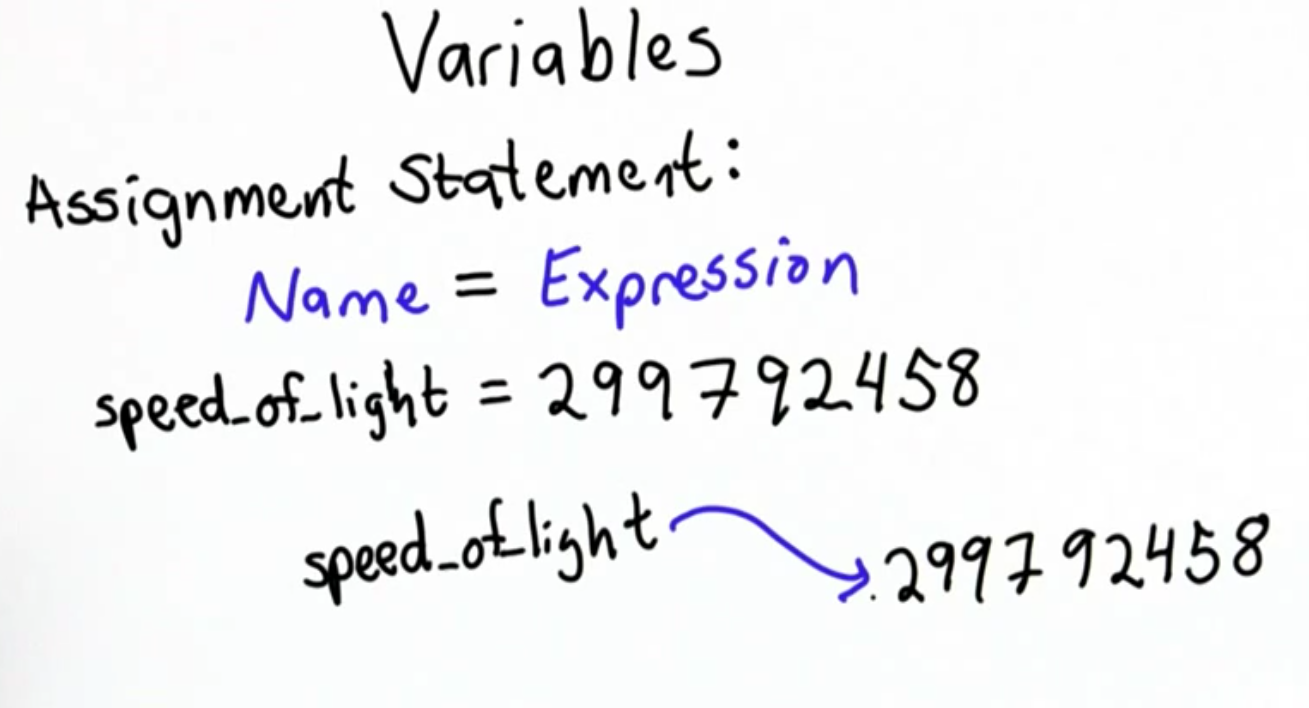 Variables
Assignment Statement:
Name = Expression
speed_of_light = 299792458
speed_of_light 299792458